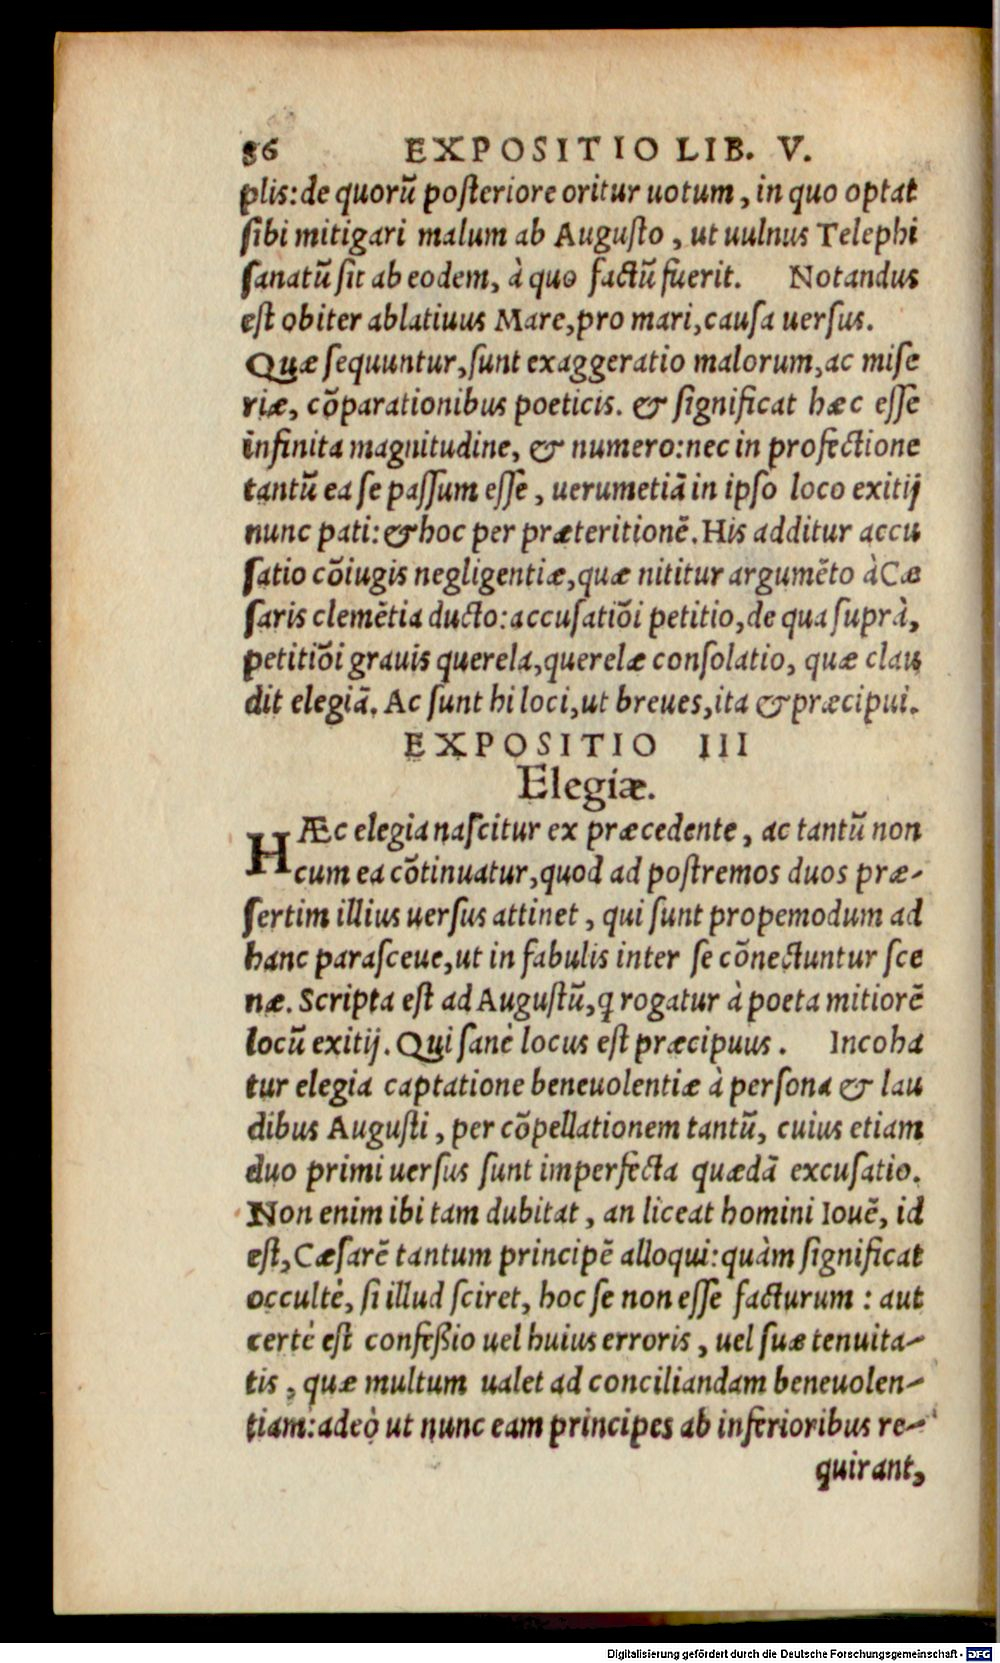 86 EXPOSITIO LIB. V.
plis: de quorū posteriore oritur uotum, in quo optat
sibi mitigari malum ab Augusto, ut uulnus Telephi
sanatū sit ab eodem, à quo factū fuerit. Notandus
est obiter ablatiuus Mare, pro mari, causa uersus.
Quæ sequuntur, sunt exaggeratio malorum, ac mise
riæ, cōparationibus poeticis. & significat hæc esse
infinita magnitudine, & numero: nec in profectione
tantū ea se passum esse, uerumetiā in ipso loco exitij
nunc pati: & hoc per præteritionē. His additur accu
satio cōiugis negligentiæ, quæ nititur argumēto à Cæ
saris clemētia ducto: accusatiōi petitio, de qua suprà,
petitiōi grauis querela, querelæ consolatio, quæ clau
dit elegiā. Ac sunt hi loci, ut breues, ita & præcipui.
EXPOSITIO III
Elegiæ.
HÆc elegia nascitur ex præcedente, ac tantū non
cum ea cōtinuatur, quod ad postremos duos præ-
sertim illius uersus attinet, qui sunt propemodum ad
hanc parasceue, ut in fabulis inter se cōnectuntur sce
næ. Scripta est ad Augustū, q rogatur à poeta mitiorē
locū exitij. Qui sanè locus est præcipuus. Incoha
tur elegia captatione beneuolentiæ à persona & lau
dibus Augusti, per cōpellationem tantū, cuius etiam
duo primi uersus sunt imperfecta quædā excusatio.
Non enim ibi tam dubitat, an liceat homini Iouē, id
est, Cæsarē tantum principē alloqui: quàm significat
occultè, si illud sciret, hoc se non esse facturum: aut
certè est confeßio uel huius erroris, uel suæ tenuita-
tis, quæ multum ualet ad conciliandam beneuolen-
tiam: adeò ut nunc eam principes ab inferioribus re-
quirant,
Digitalisierung gefördert durch die Deutsche Forschungsgemeinschaft - DFG